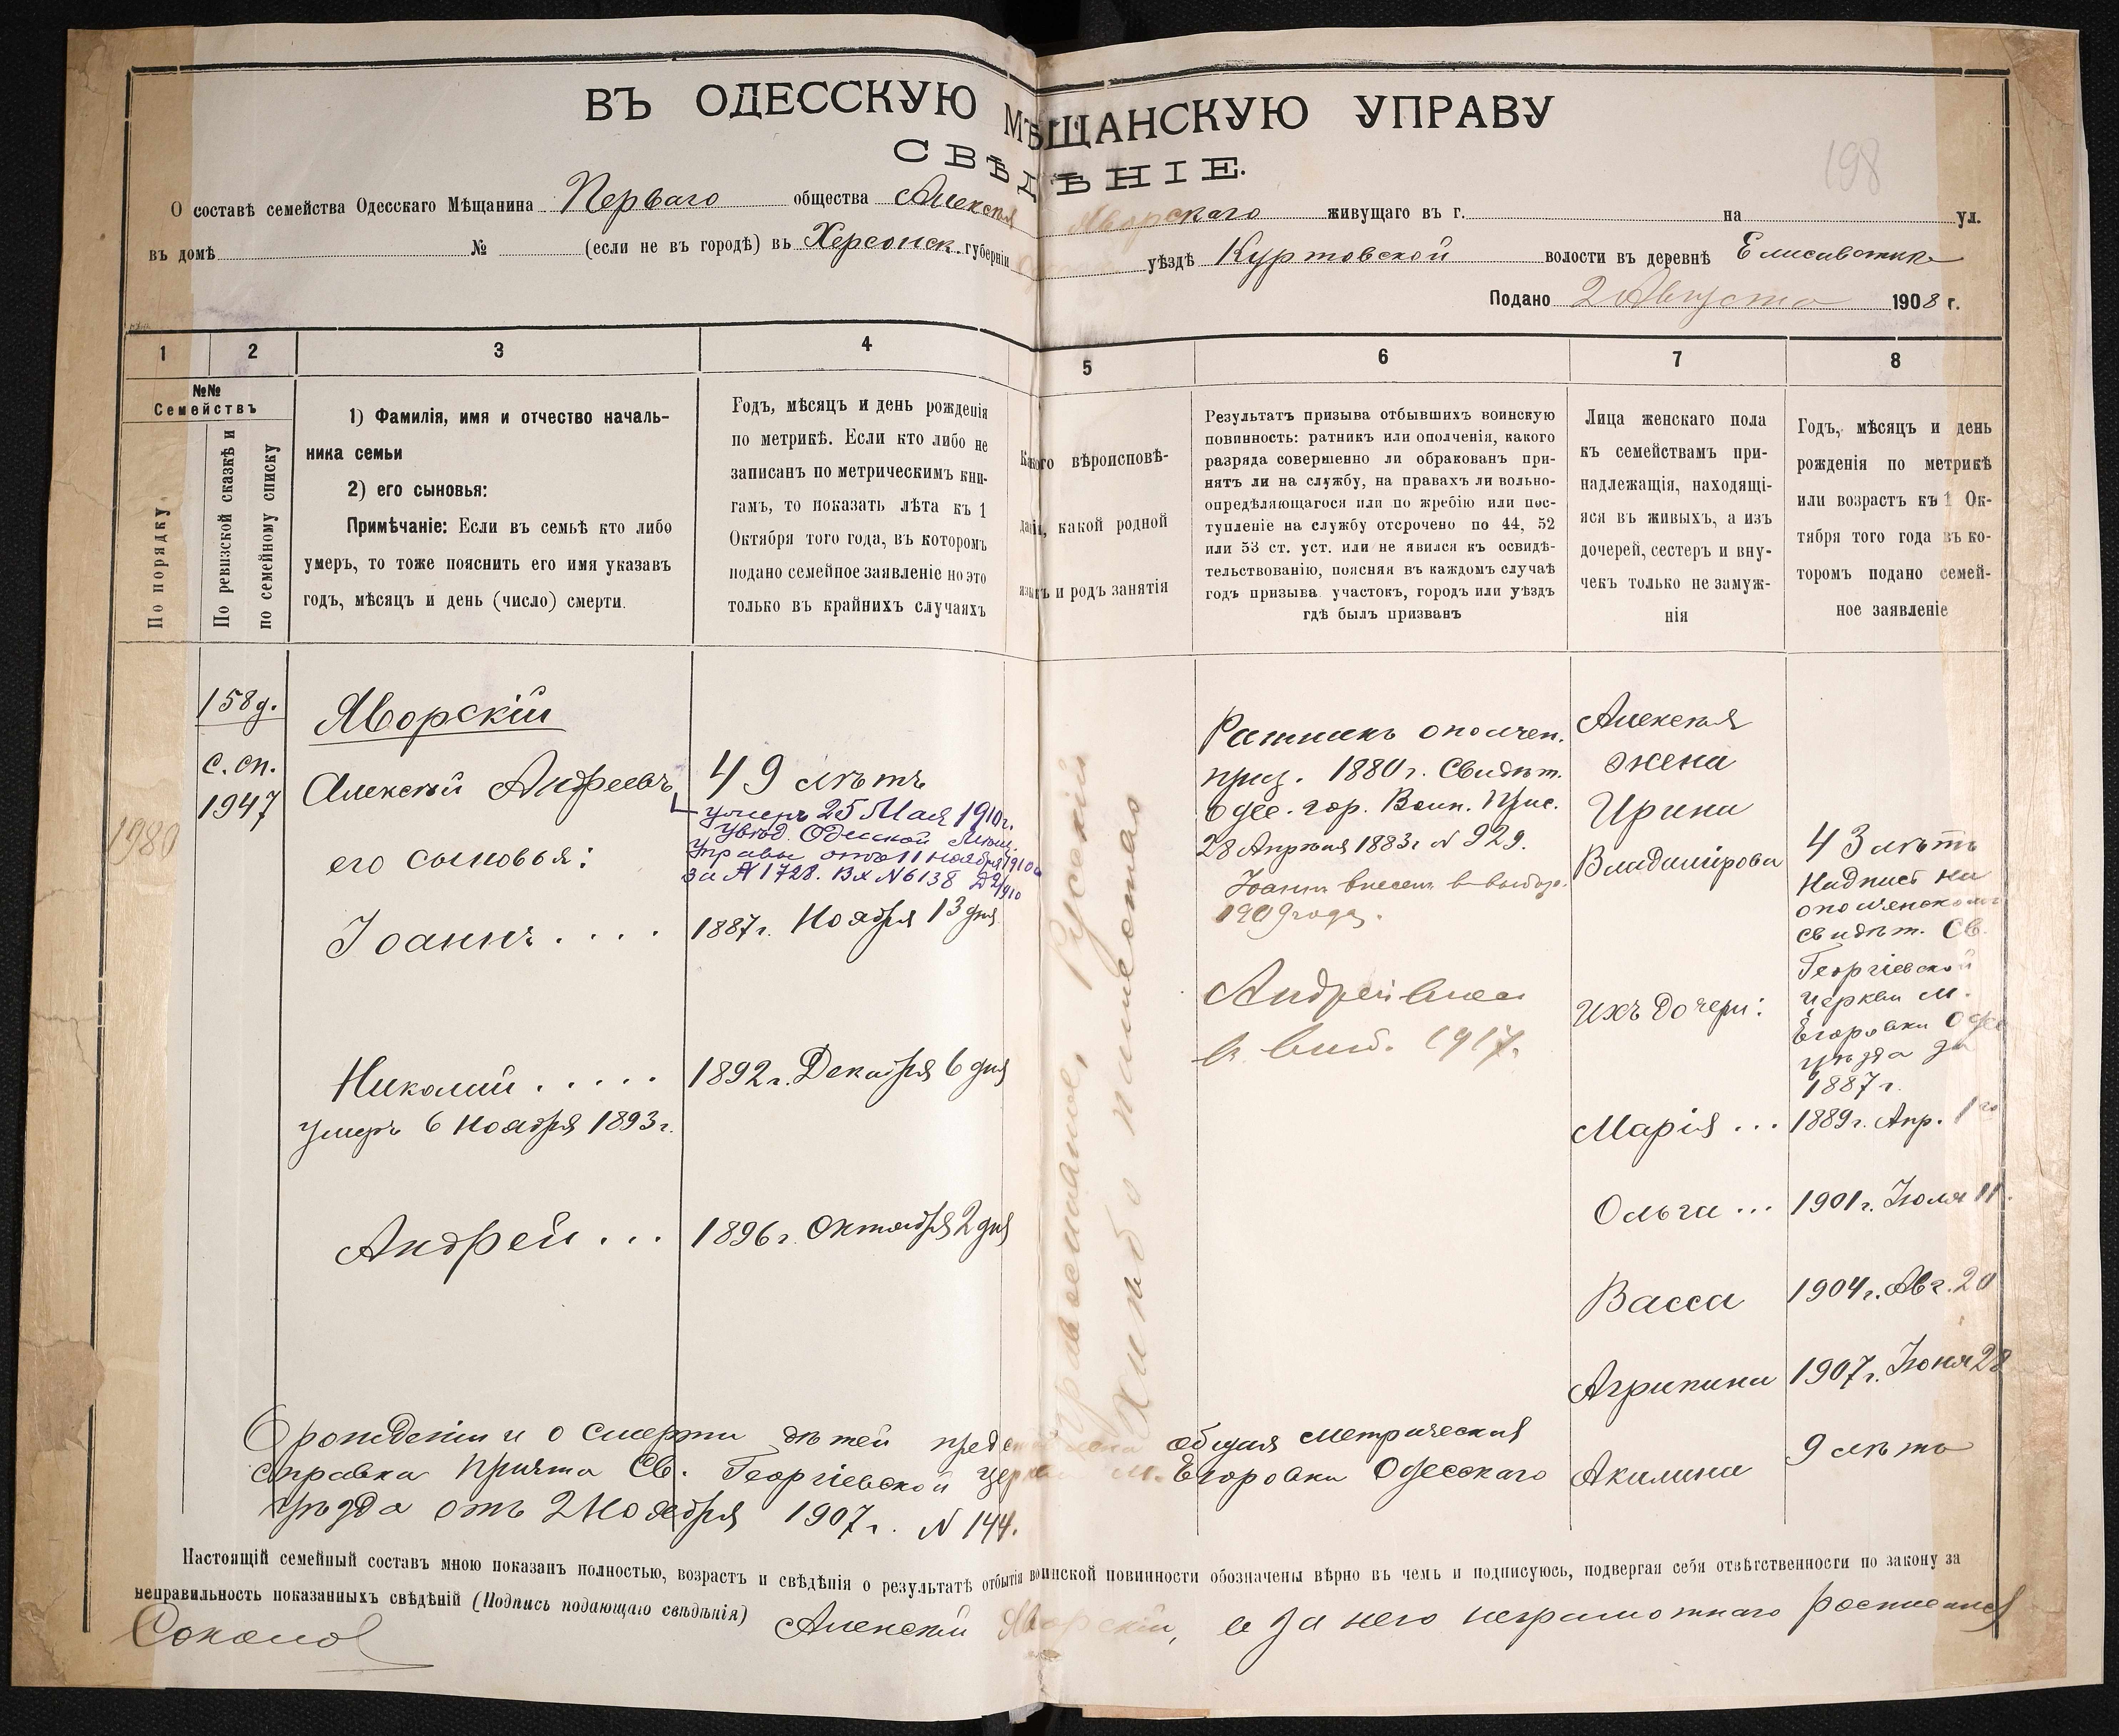 198
ВЪ ОДЕССКУЮ МѢЩАНСКУЮ УПРАВУ
СВѢДѢНІЕ.
О составѣ семейства Одесскаго Мѣщанина Перваго общества Алексѣя Яворскаго живущаго въ г. на ул.
въ домѣ № (если не въ городѣ) въ Херсонск. губерніи уѣздѣ Куртовской волости въ деревнѣ
Подано 2 Августа 1908 г.
1 2 3 4 5 6 7 8
№№
Семействъ
По порядку
По ревизской сказкѣ и
по семейному списку
1) Фамилія, имя и отчество началь-
ника семьи
2) его сыновья:
Примѣчаніе: Если въ семьѣ кто либо
умеръ, то тоже пояснить его имя указавъ
годъ, мѣсяцъ и день (число) смерти.
Годъ, мѣсяцъ и день рожденія
по метрикѣ. Если кто либо не
записанъ по метрическимъ кни-
гамъ, то показать лѣта къ 1
Октября того года, въ которомъ
подано семейное заявленіе но это
только въ крайнихъ случаяхъ
Какого вѣроисповѣ-
данія, какой родной
языкъ и родъ занятія
Результатъ призыва отбывшихъ воинскую
повинность: ратникъ или ополченія, какого
разряда совершенно ли обракованъ при-
нятъ ли на службу, на правахъ ли вольно-
опредѣляющагося или по жребію или пос-
тупленіе на службу отсрочено по 44, 52
или 53 ст. уст. или не явился къ освидѣ-
тельствованію, поясняя въ каждомъ случаѣ
годъ призыва участокъ, городъ или уѣздъ
гдѣ былъ призванъ
Лица женскаго пола
къ семействамъ при-
надлежащія, находящі-
яся въ живыхъ, а изъ
дочерей, сестеръ и вну-
чекъ только не замуж-
нія
Годъ, мѣсяцъ и день
рожденія по метрикѣ
или возрастъ къ 1 Ок-
тября того года въ ко-
торомъ подано семей-
ное заявленіе
1980
158д.
с. сп.
1947
Яворскій
Алексѣй Андреевъ
его сыновья:
Іоаннъ ....
Николай .....
умеръ 6 Ноября 1893 г.
Андрей ...
49 лѣтъ
умеръ 25 Мая 1910 г.
увѣд. Одесской Мѣщ.
Управы отъ 11 ноября 1910
за № 1728. Вх № 6138
1887 г. Ноября 13 дня
1892 г. Декабря 6 дня
1896 г. Октября 2 дня
Православное, Русскій
Хлѣбопашество
Ратникъ ополчен.
приз. 1880 г. Свидѣт.
Одес. гор. Воин. Прис.
28 Апрѣля 1883 г № 929.
Іоаннъ внесенъ в
1909 года.
Андрей внесен
в 1917.
Алексѣя
жена
Ирина
Владимірова
Ихъ дочери:
Марія ...
Ольга ...
Васса
Агрипина
Акилина
43 лѣтъ
Надпись на
ополченском
свидѣт. Св.
Георгіевской
церкви м.
Егоровки Одес
уѣзда за
1887 г.
1889 г. Апр. 1го
1901 г. Іюля 11.
1904 г. Авг. 20
1907 г. Іюня 28
9 лѣтъ
О рожденіи и о смерти дѣтей представлена общая метрическая
справка причта Св. Георгіевской церкви м. Егоровки Одесскаго
уѣзда отъ 2 Ноября 1907 г. № 144.
Настоящій семейный составъ мною показанъ полностью, возрастъ и свѣдѣнія о результатѣ отбытія воинской повинности обозначены вѣрно въ чемъ и подписуюсь, подвергая себя отвѣтственности по закону за
неправильность показанныхъ свѣдѣній (Подпись подающаго свѣдѣнія) Алексѣй Яворскій, а за него неграмотнаго росписался
Соколов